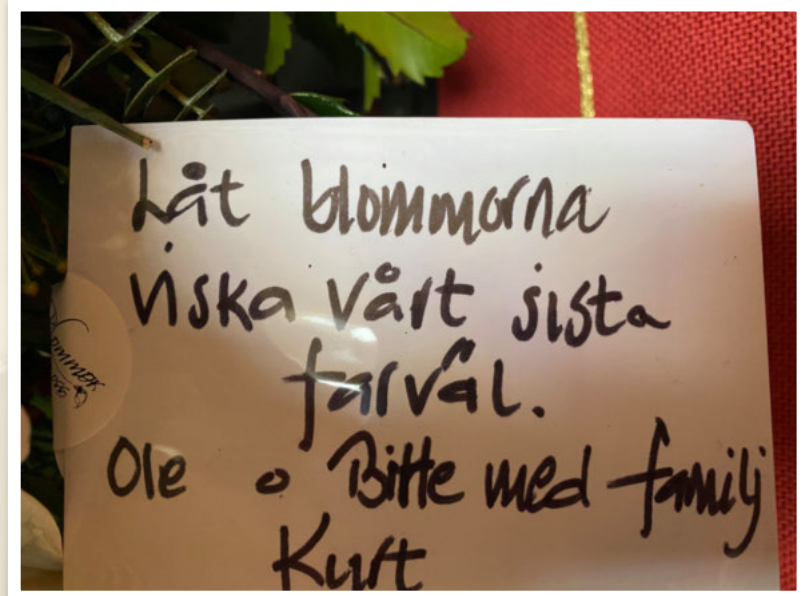 Låt blommorna
viska vårt sista
farväl.
Ole o Bitte med familj
Kurt